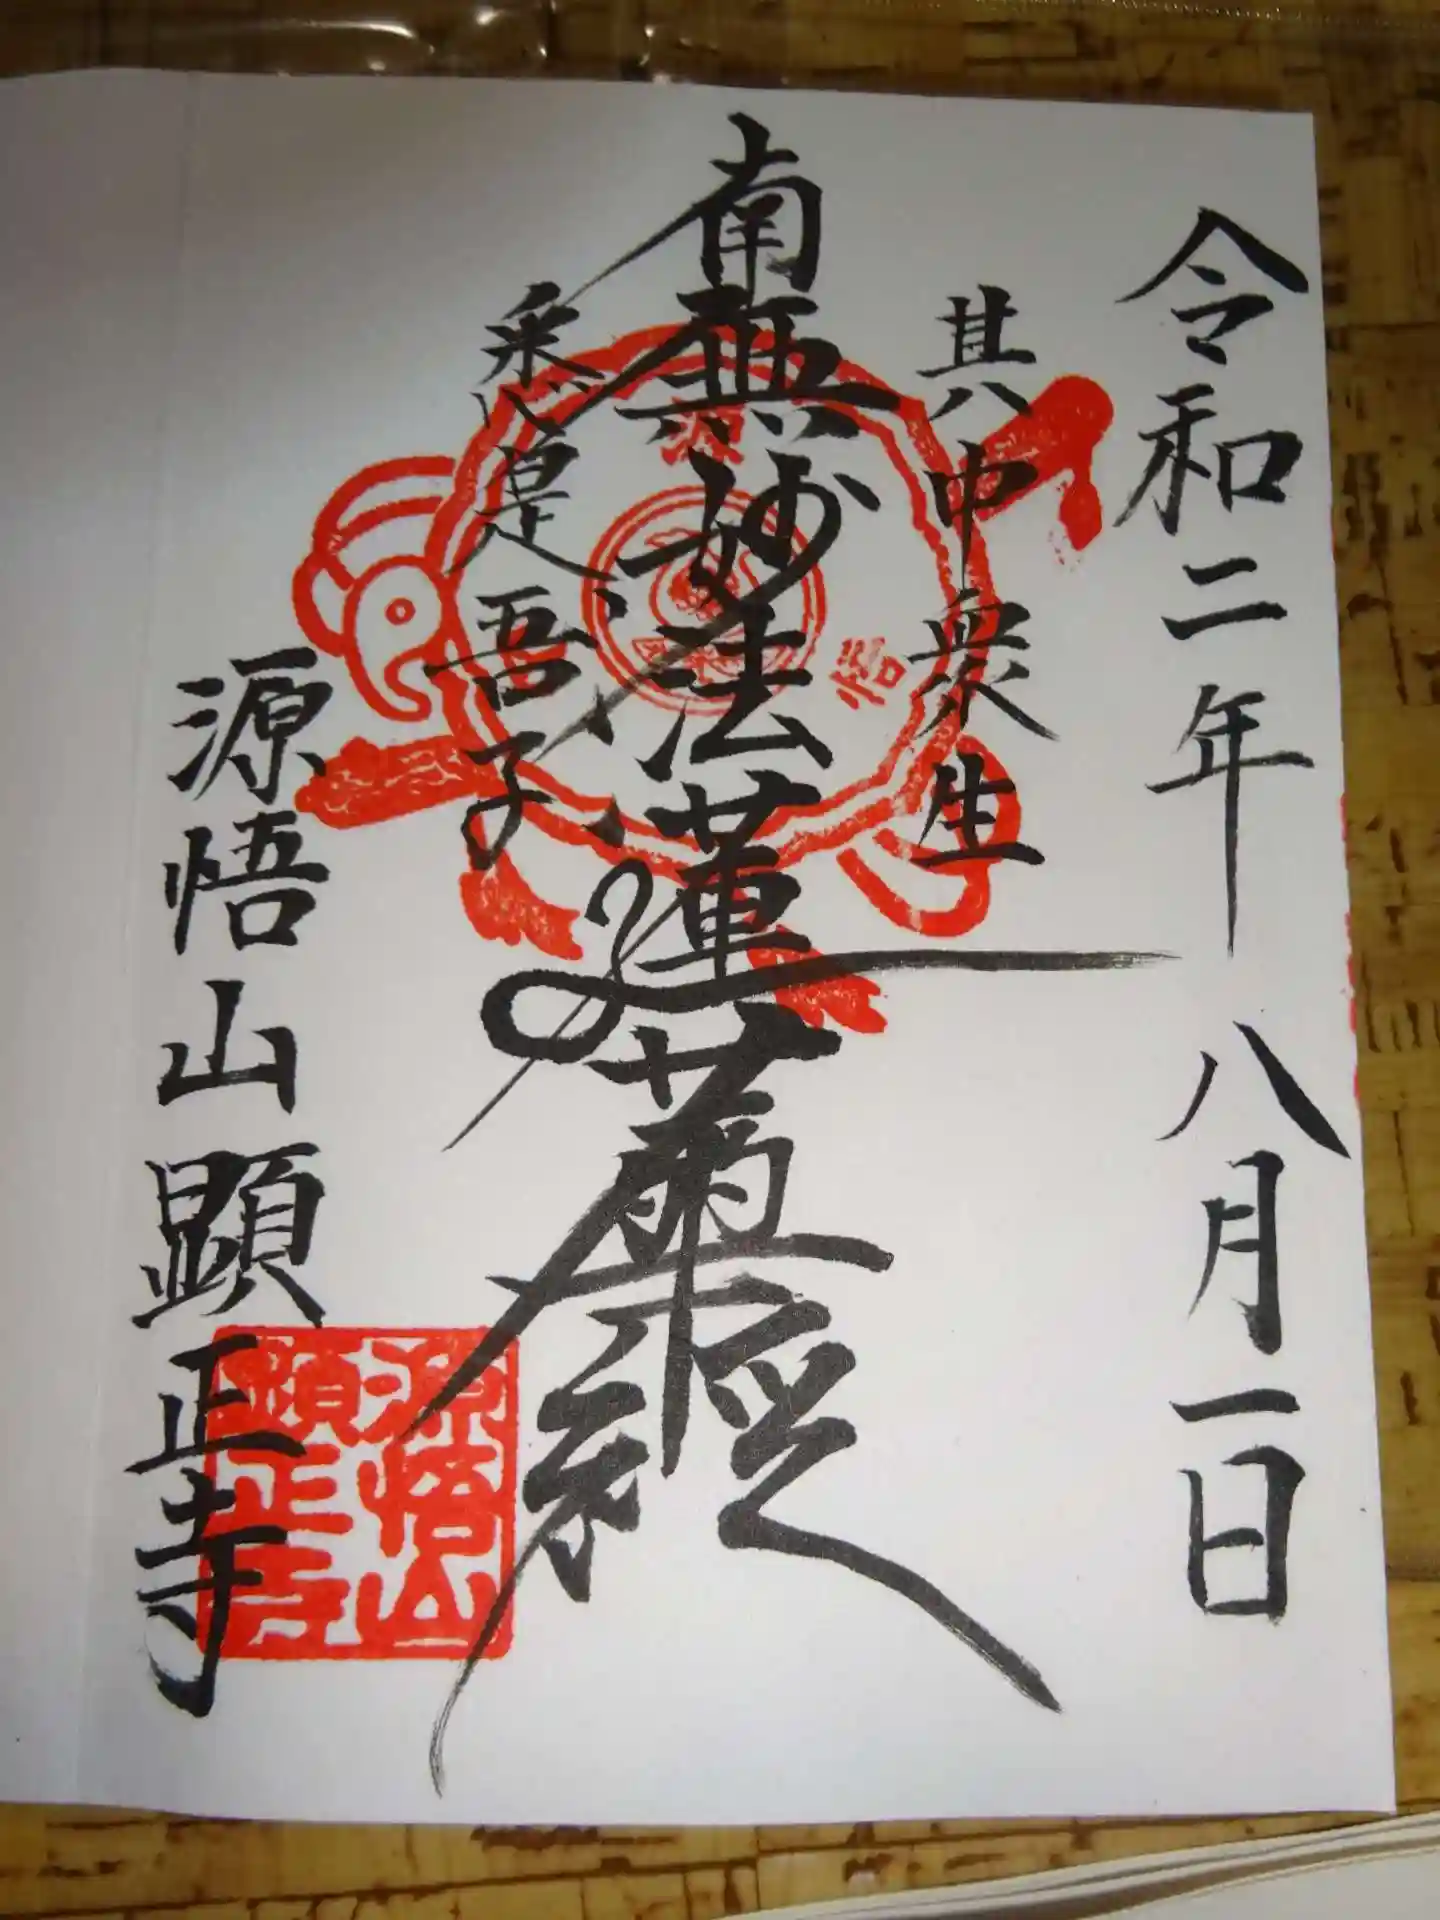 令和二年 八月一日
其中衆生
南無妙法蓮華経
悉是吾子
源悟山顕正寺
源悟山
顕正寺
悟